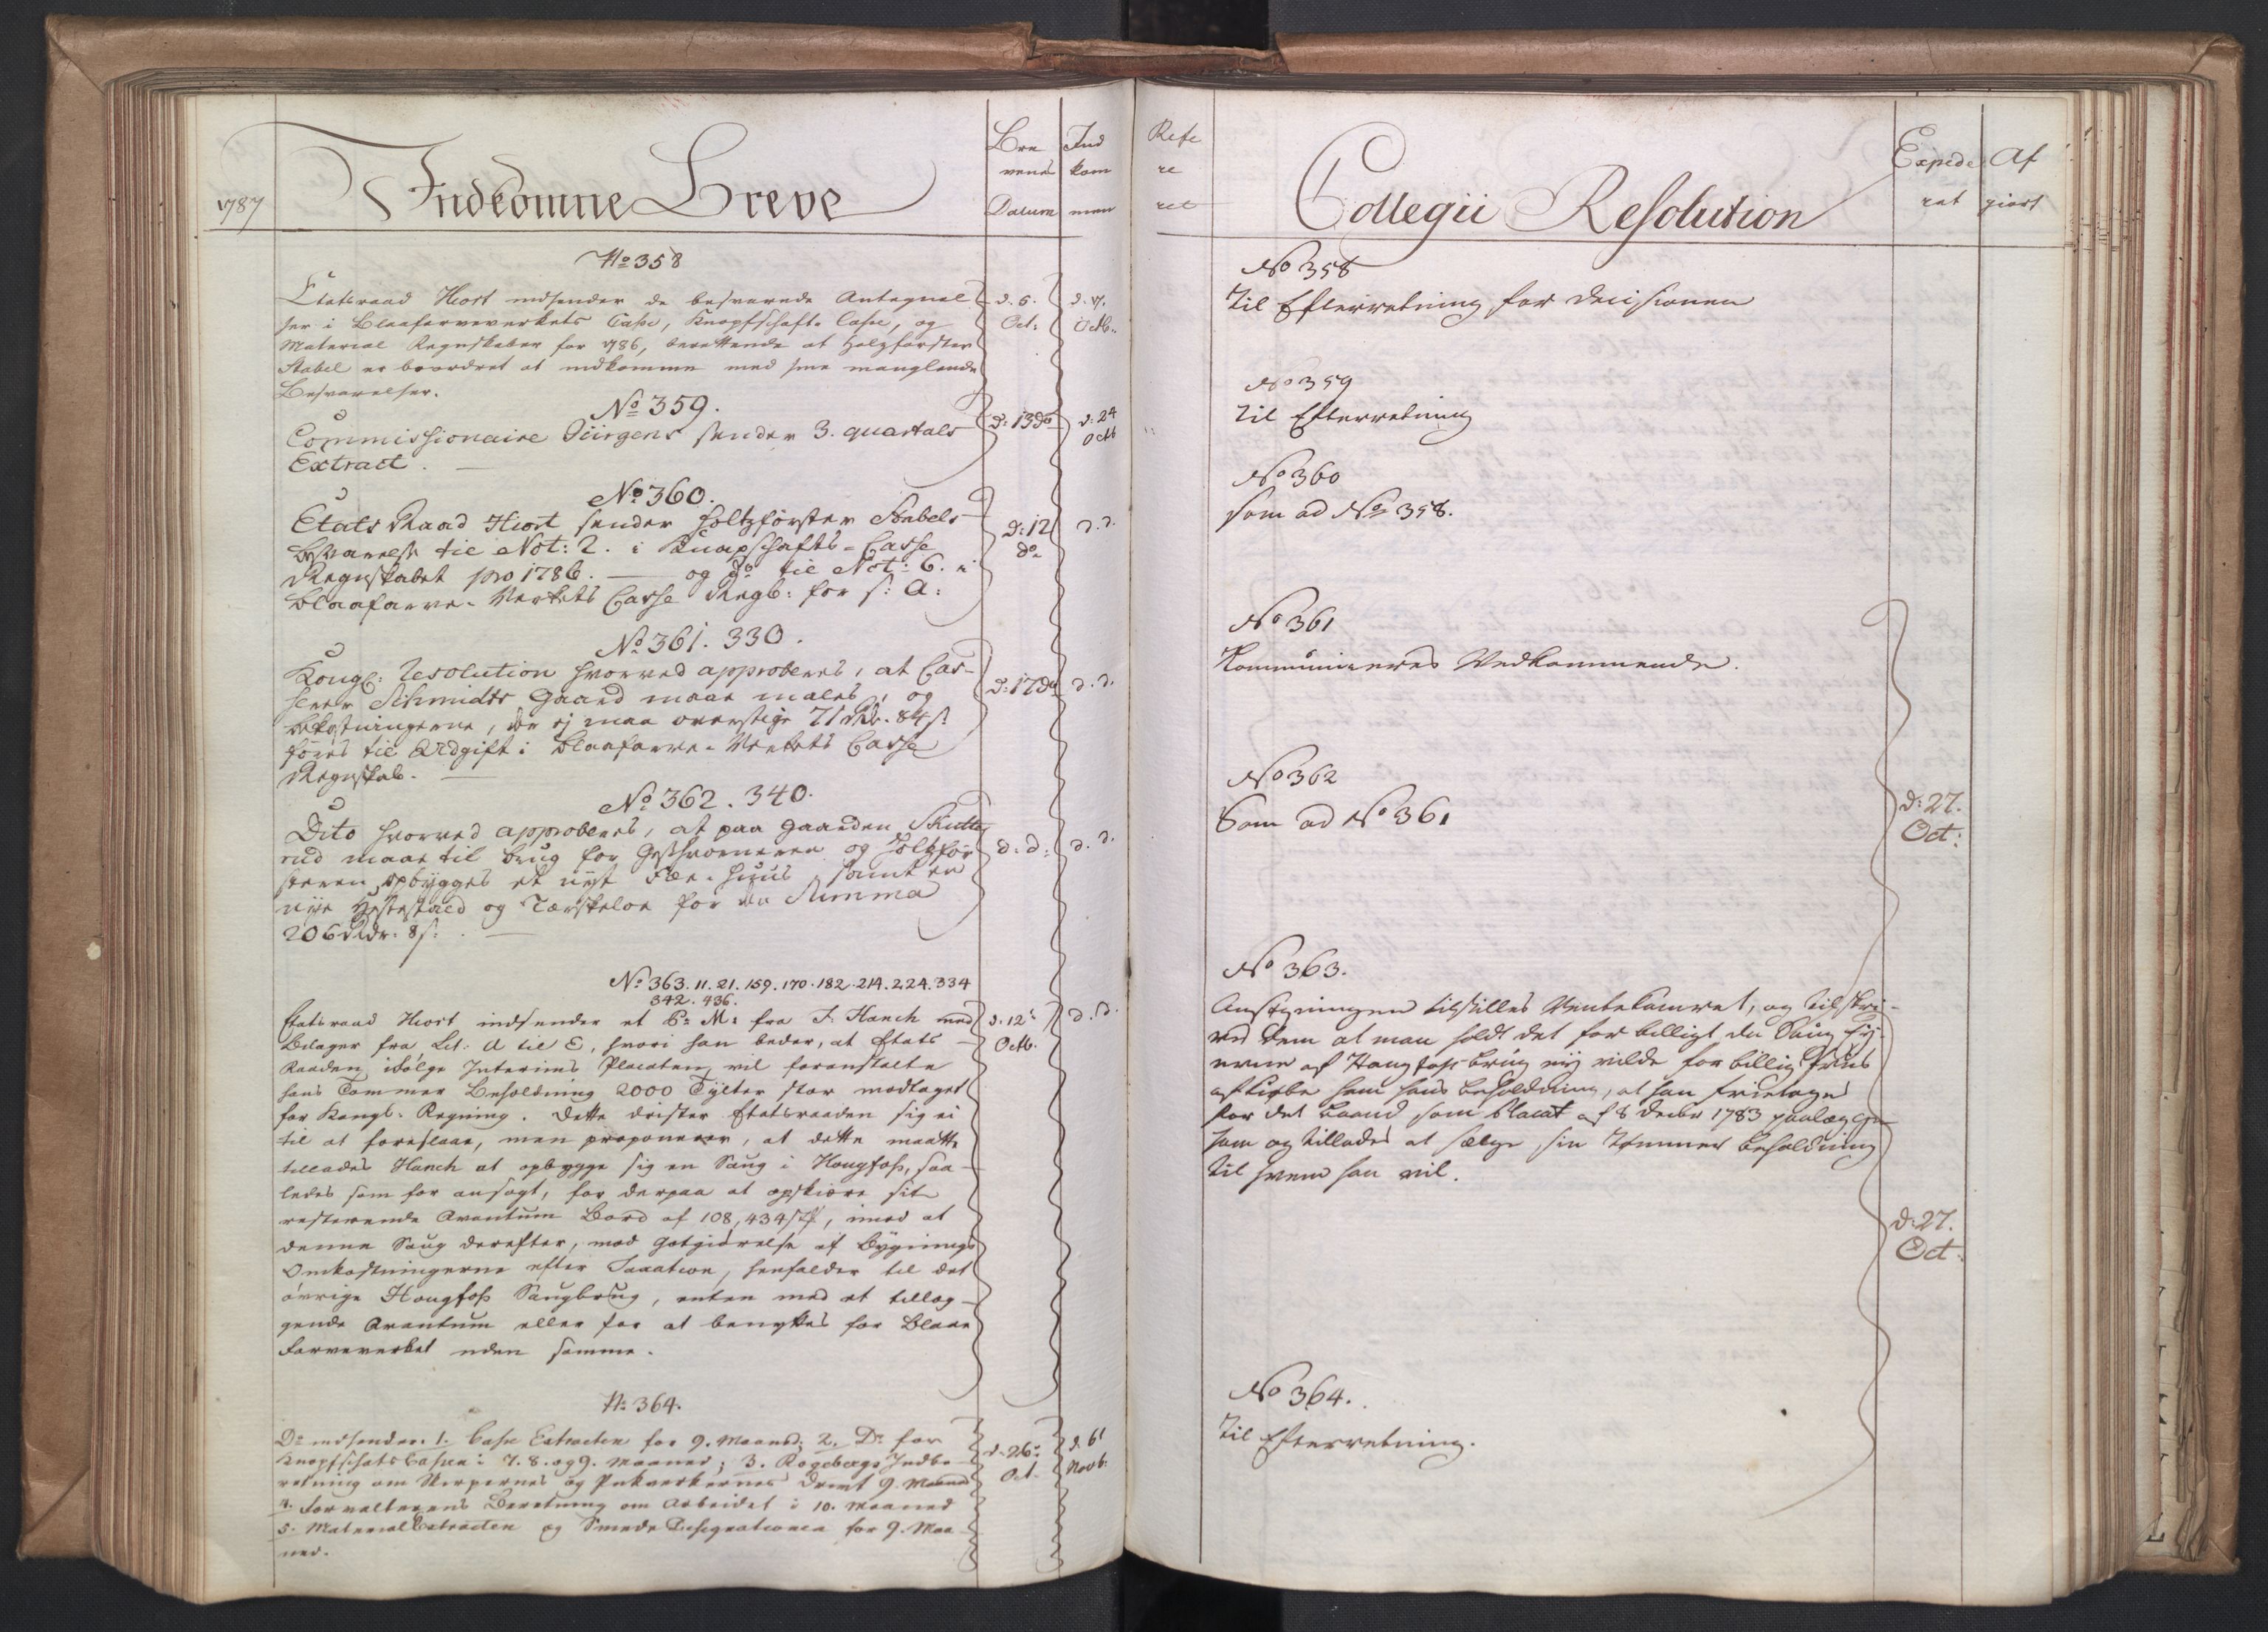 1787
Indkomne Breve
Bre
venes
Datum
Ind
kom
men
No 358
Etatsraad Hiort indsender de besvarede Antegnel
ser i Blaafarveverkets Casse, Knapschafts Casse, og
Material Regnskaber for 1786, berettende at Holzførster
Stabel er beordret at indkomme med sine manglende
Besvarelser.
d. 6.
Oct:
d. 17.
Octb:
No 359.
Commissionaire Jürgens sender 3. quartals
Extract.
d: 13 do
d: 24
Octb
No 360.
Etats Raad Hiort sender Holtzførster Stabels
besvarelse til Not: 2. i Knapschafts-Casse
Regnskabet pro 1786. — og do til Not: 6. i
Blaafarve-Verkets Casse Regb: for s: A:
d: 12
do
d. d.
No 361. 330.
Kongl: Resolution hvorved approberes, at Cas-
serer Schmidts Gaard maae males, og
bekostningerne, der ej maa overstige 71 Rdr. 84 s.
føres til Udgift i Blaafarve-Verkets Casse
Regnskab.
d: 17 do
d. d.
No 362. 340.
Dito hvorved approberes, at paa gaarden Skutte
rud maae til brug for Geschworneren og Holtzfør
steren, opbygges et nyt Fæe-huus samt en
nye Hestestald og Tærskeloe for den Summa
206 Rdr. 8 s.
d: d:
d. d.
No 363. 11. 21. 159. 170. 182. 214. 224. 334
342. 436.
Etatsraad Hiort indsender et P: M: fra J. Hanch med
Bilager fra Lit: A til E, hvori han beder, at Etats
Raaden, ifølge Interims Placaten, vil foranstalte
hans Tømmer Beholdning 2000 Tylter stor modtaget
for Kongl. Regning. Dette drister Etatsraaden sig ei
til at foreslaae, men proponerer, at dette maatte
tillades Hanch at opbygge sig en Saug i Hougfoss, saa-
ledes som før ansøgt, for derpaa at opskiære sit
resterende Qvantum Bord af 108,434 st, imod at
denne Saug derefter, mod Godtgiørelse af Bygnings
Omkostningerne efter Taxation, henfalder til det
øvrige Hougfoss Saugbrug, enten med et tillæg-
gende Qvantum eller for at benyttes for Blaae
Farveverket uden samme.
d. 12
Octb.
d. d.
No 364.
Do indsender 1. Casse Extracten for 9. Maaned; 2. Do for
Knapschafts Cassen i 7. 8. og 9. Maaned; 3. Rogebergs Indbe-
retning om og Pukverkernes Drivt 9. Maaned
4. Forvalterens Beretning om Arbeidet i 10. Maaned
5. Material Extracten og Smede Designationen for 9. Maa
ned.
d. 26
Oct.
d. 6
Novb:
Refe
re
ret
Collegii Resolution
Expede
ret
Af
giort
No 358
Til Efterretning for Decisionen
No 359
Til Efterretning
No 360
som ad No 358.
No 361
Kommuniceres Vedkommende.
No 362
Som ad No 361
d: 27.
Oct:
No 363.
Ansøgningen tilstilles Rentekamret, og tilskri-
ves dem at man holdt det for billigt da Saug Ey-
erne af Hougfoss brug ey vilde for billig Priis
afkiøbe ham hans beholdning, at han fritages
for det baand som Placat af 8 Decbr 1783 paalægge
ham og tillades at sælge sin Tømmer beholdning
til hvem han vil.
d: 27.
Oct:
No 364.
Til Efterretning.